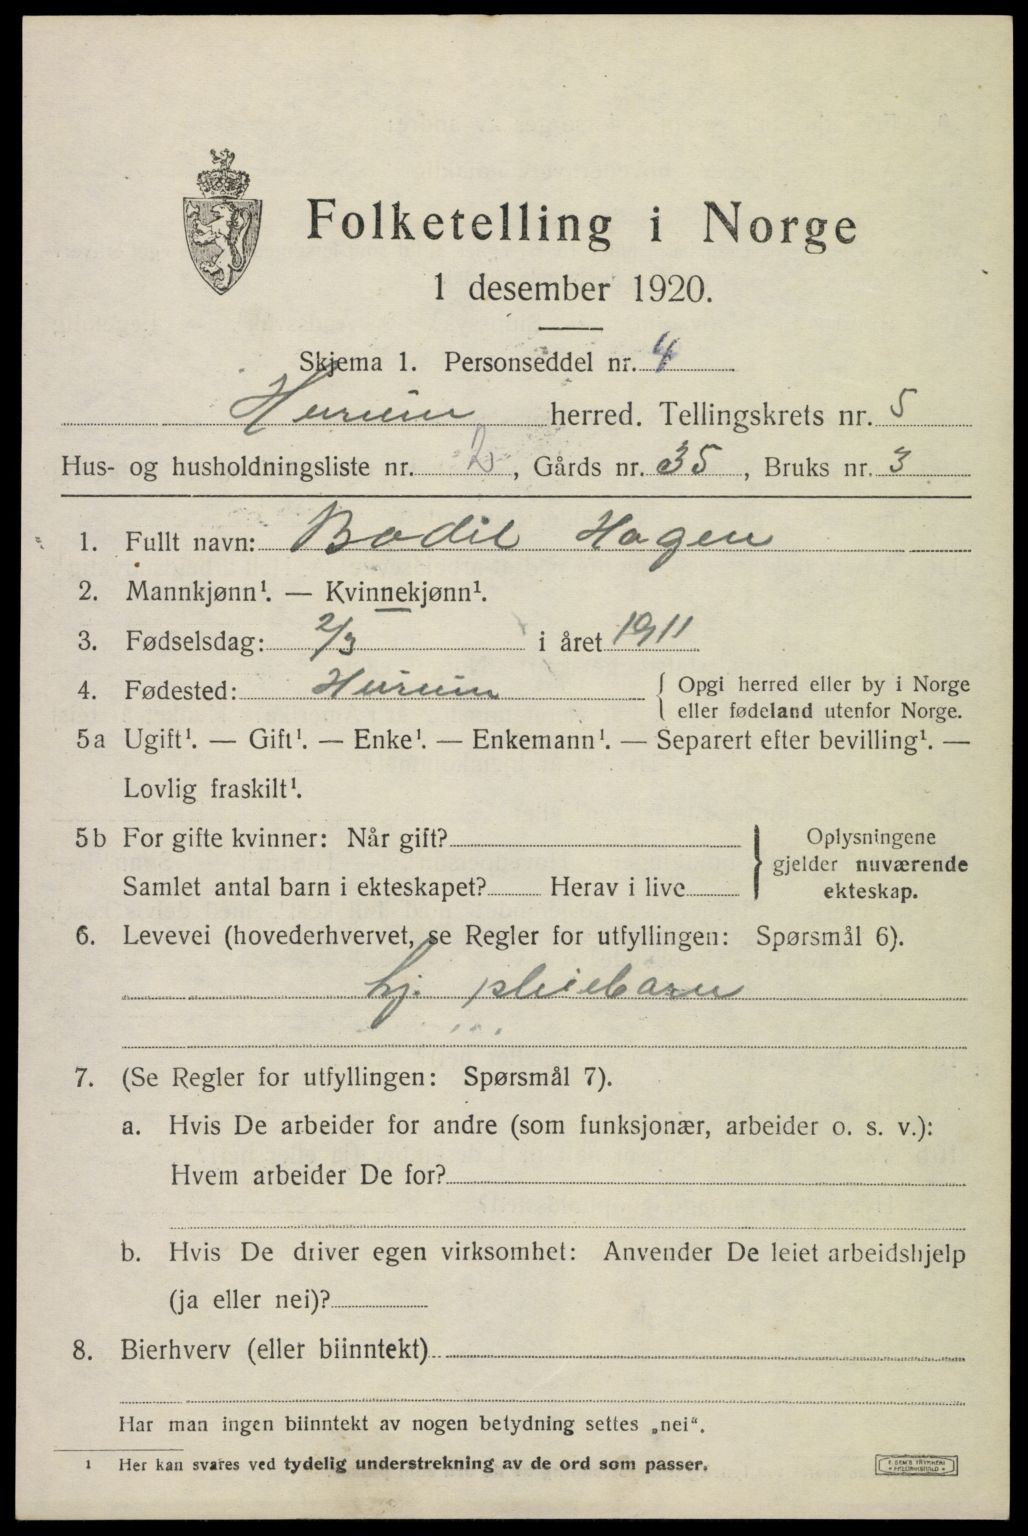 Folketelling i Norge
1 desember 1920.
Skjema 1. Personseddel nr. 4
Hurum herred. Tellingskrets nr. 5
Hus- og husholdningsliste nr. 2, Gårds nr. 35, Bruks nr. 3
1. Fullt navn: Bodil Hagen
2. Mannkjønn¹. — Kvinnekjønn¹.
3. Fødselsdag: 2/3 i året 1911
4. Fødested: Hurum { Opgi herred eller by i Norge
eller fødeland utenfor Norge.
5a Ugift¹. — Gift¹. — Enke¹. — Enkemann¹. — Separert efter bevilling¹. —
Lovlig fraskilt¹.
5b For gifte kvinner: Når gift?
Samlet antal barn i ekteskapet? Herav i live
} Oplysningene
gjelder nuværende
ekteskap.
6. Levevei (hovederhvervet, se Regler for utfyllingen: Spørsmål 6).
hj. pleiebarn
7. (Se Regler for utfyllingen: Spørsmål 7).
a. Hvis De arbeider for andre (som funksjonær, arbeider o. s. v.):
Hvem arbeider De for?
b. Hvis De driver egen virksomhet: Anvender De leiet arbeidshjelp
(ja eller nei)?
8. Bierhverv (eller biinntekt)
Har man ingen biinntekt av nogen betydning settes „nei“.
¹ Her kan svares ved tydelig understrekning av de ord som passer.